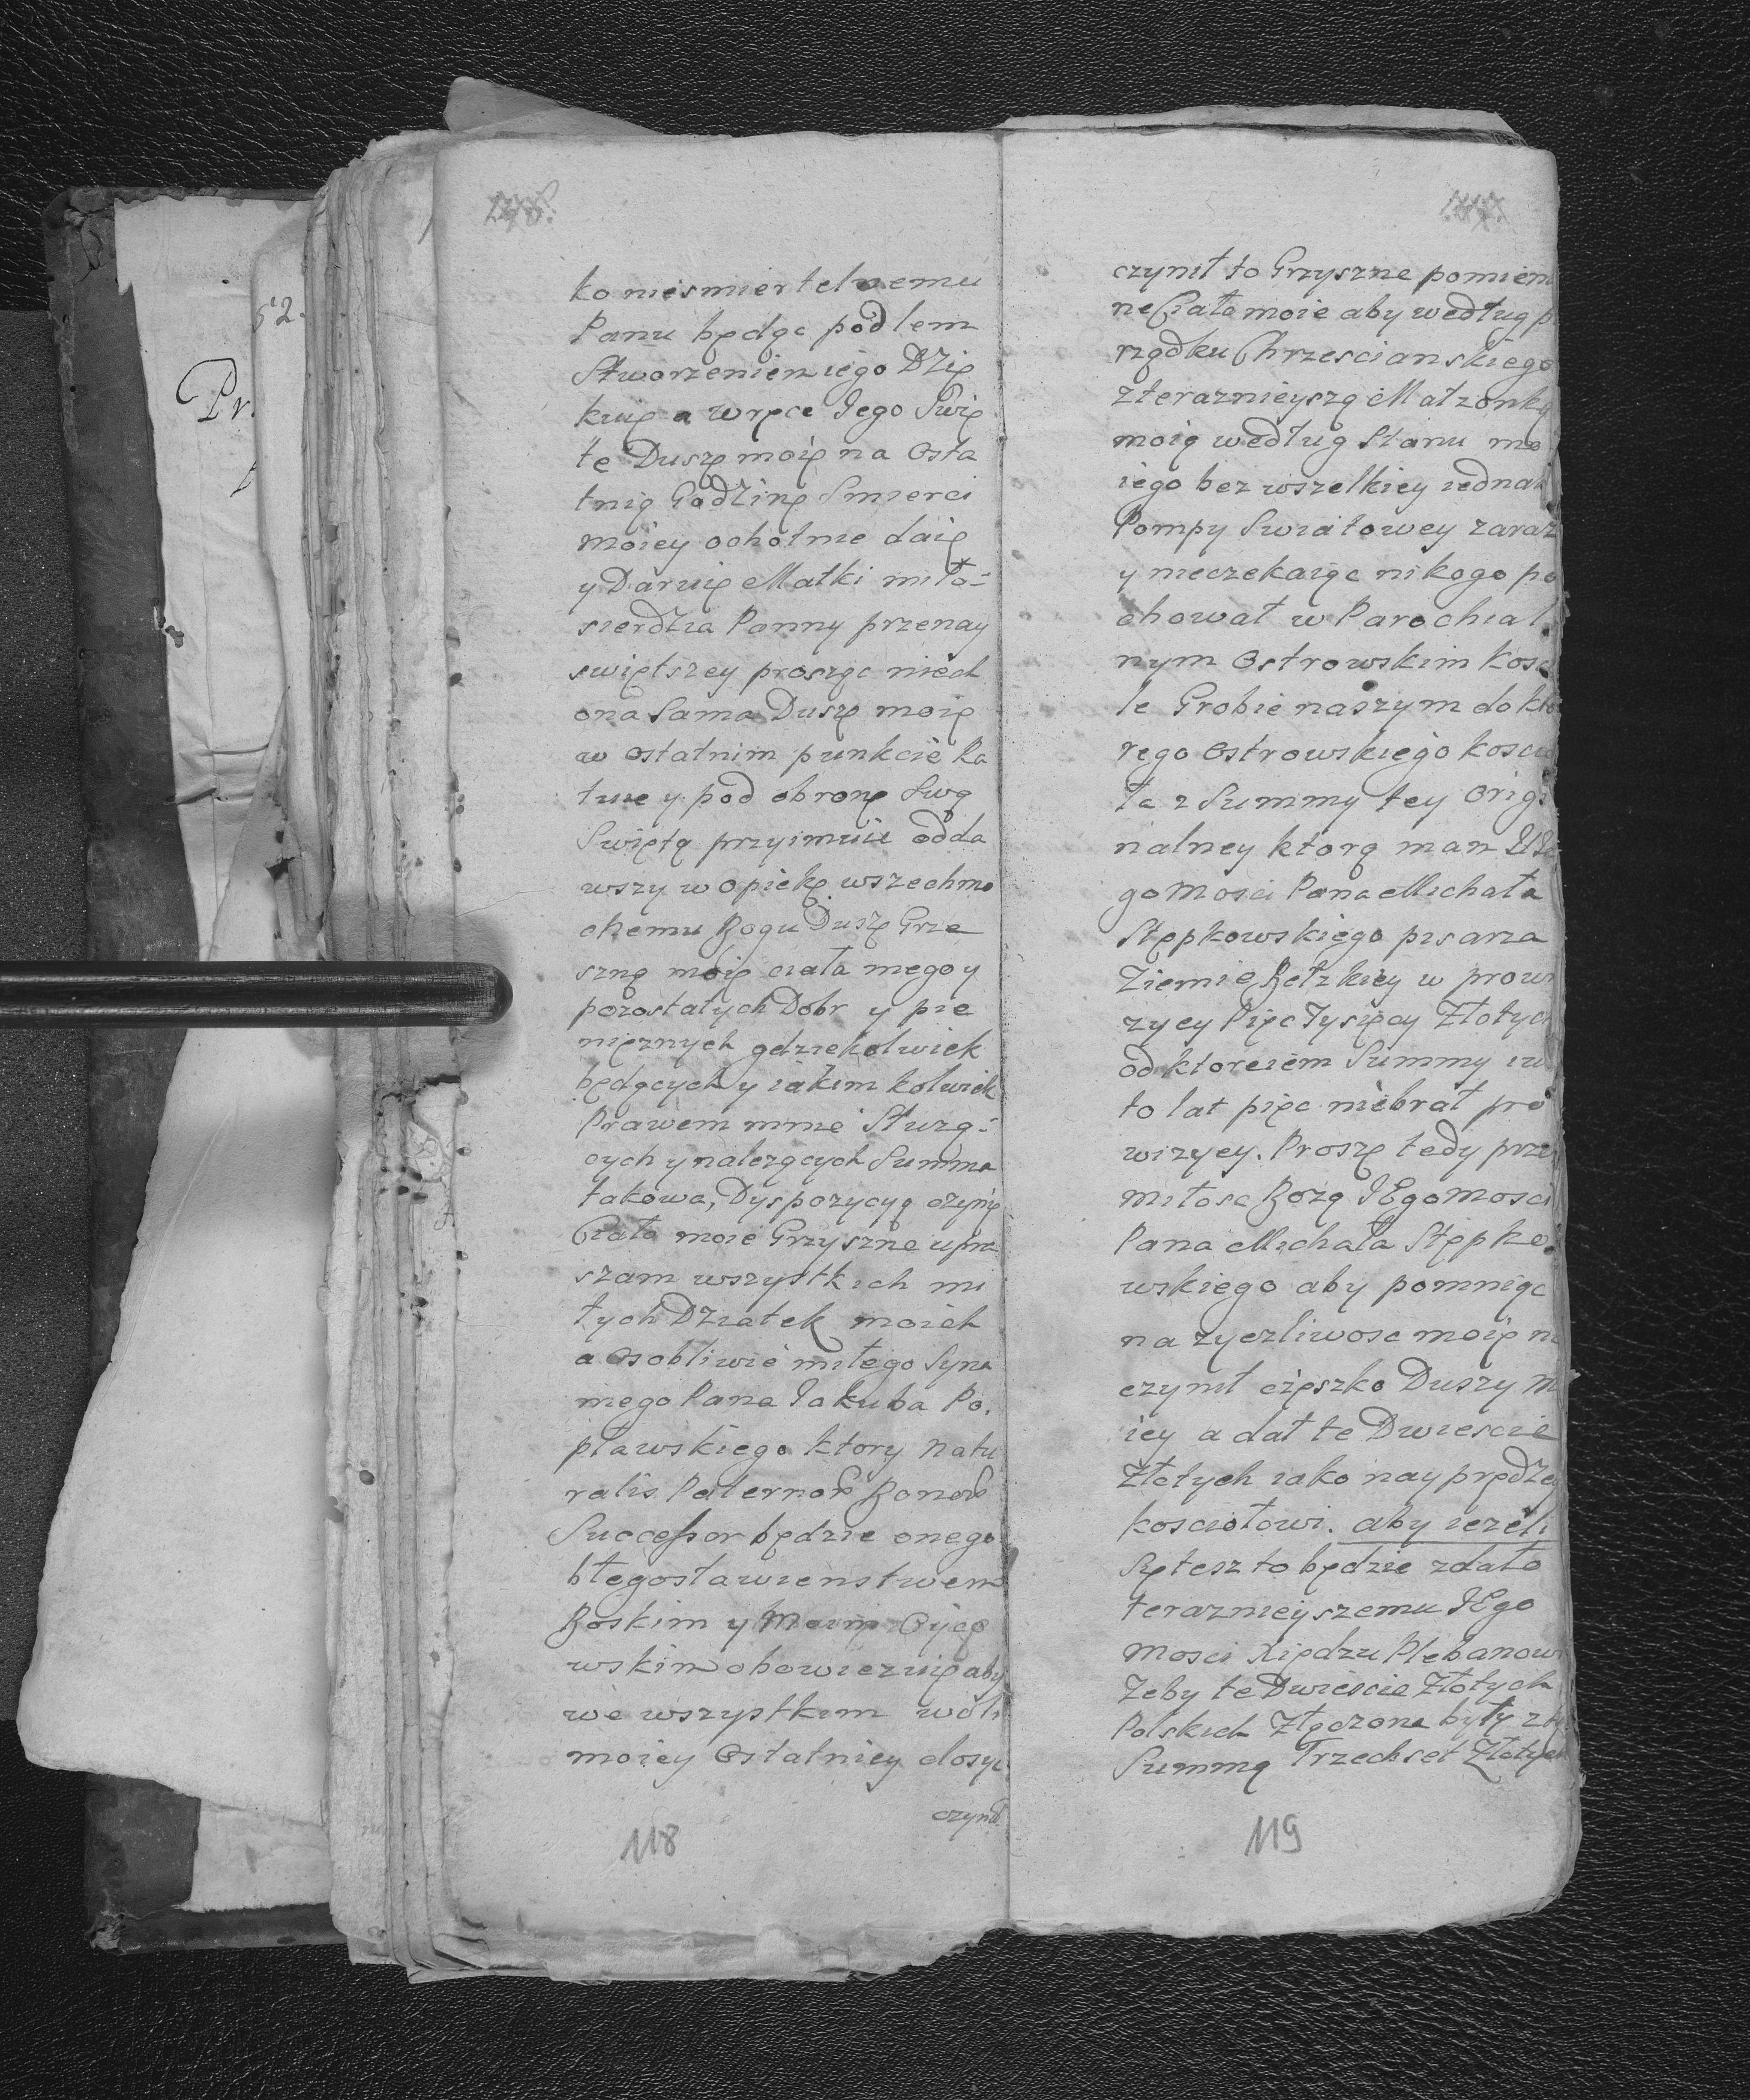 52.
Pr.
ko niesmiertelnemu
Panu będąc podłem
Stworzeniem iego Dzię
kuię a w ręce Jego Swię
te Duszę moię na osta
tnią Godzinę Smierci
moiey ochotnie daię
y Daruię Matki miło-
sierdzia Panny przenay
swiętszey prosząc niech
ona sama Duszę moię
w ostatnim punkcie Ra
tuie y pod obronę Swą
Swiętą przyimuie odda
wszy w opiekę wszechmo
chemu Bogu Duszę Grze
szną moię ciała mego y
pozostałych Dobr y pie
nięznych gdziekolwiek
będących y iakim kolwiek
Prawem mnie Służą-
cych y nalezących Summa
takowa, Dyspozycyą czynię
Ciało moie Grzyszne upra
szam wszystkich mi
łych Dziatek moich
a osobliwie miłego Syna
mego Pana Jakuba Po.
pławskiego ktory natu
ralis Paternor Bonor
Successor będzie onego
błegosławienstwem
Boskim y Moim Oyco
wskim obowiezuię aby
we wszystkim woli
moiey ostatniey dosyc
czynił
118
czynił to Grzyszne pomien
ne Ciało moie aby według p
rządku Chrzescianskiego
z teraznieyszą Małzonką
moią według Stanu mo
iego bez wszelkiey iednak
Pompy Swiatowey zaraz
y nieczekaiąc nikogo po
chował w Parochial
nym Ostrowskim Kosc
le Grobie naszym do kto
rego Ostrowskiego koscio
ła z Summy tey Origi
nalney ktorą mam
go Mosci Pana Michała
Stępkowskiego pisarza
Ziemie Bełzkiey w prowi
zycy Pięc Tysięcy Złotych
od ktoreiem Summy iu
to lat pięc niebrał pro
wizycy. Proszę tedy prze
miłosc Bozą JEgomosci
Pana Michała Stępko.
wskiego aby pomniąc
na zyczliwosc moię ni
czynił cięszko Duszy m
iey a dał te Dwiescie
Złotych iako nayprędze
kosciołowi. aby iezeli
Się tesz to będzie zdało
teraznieyszemu JEgo
mosci Xiędzu Plebanowi
Zeby te Dwiescie Złotych
Polskich Złączone były z tą
Summą Trzechset Złotych
119